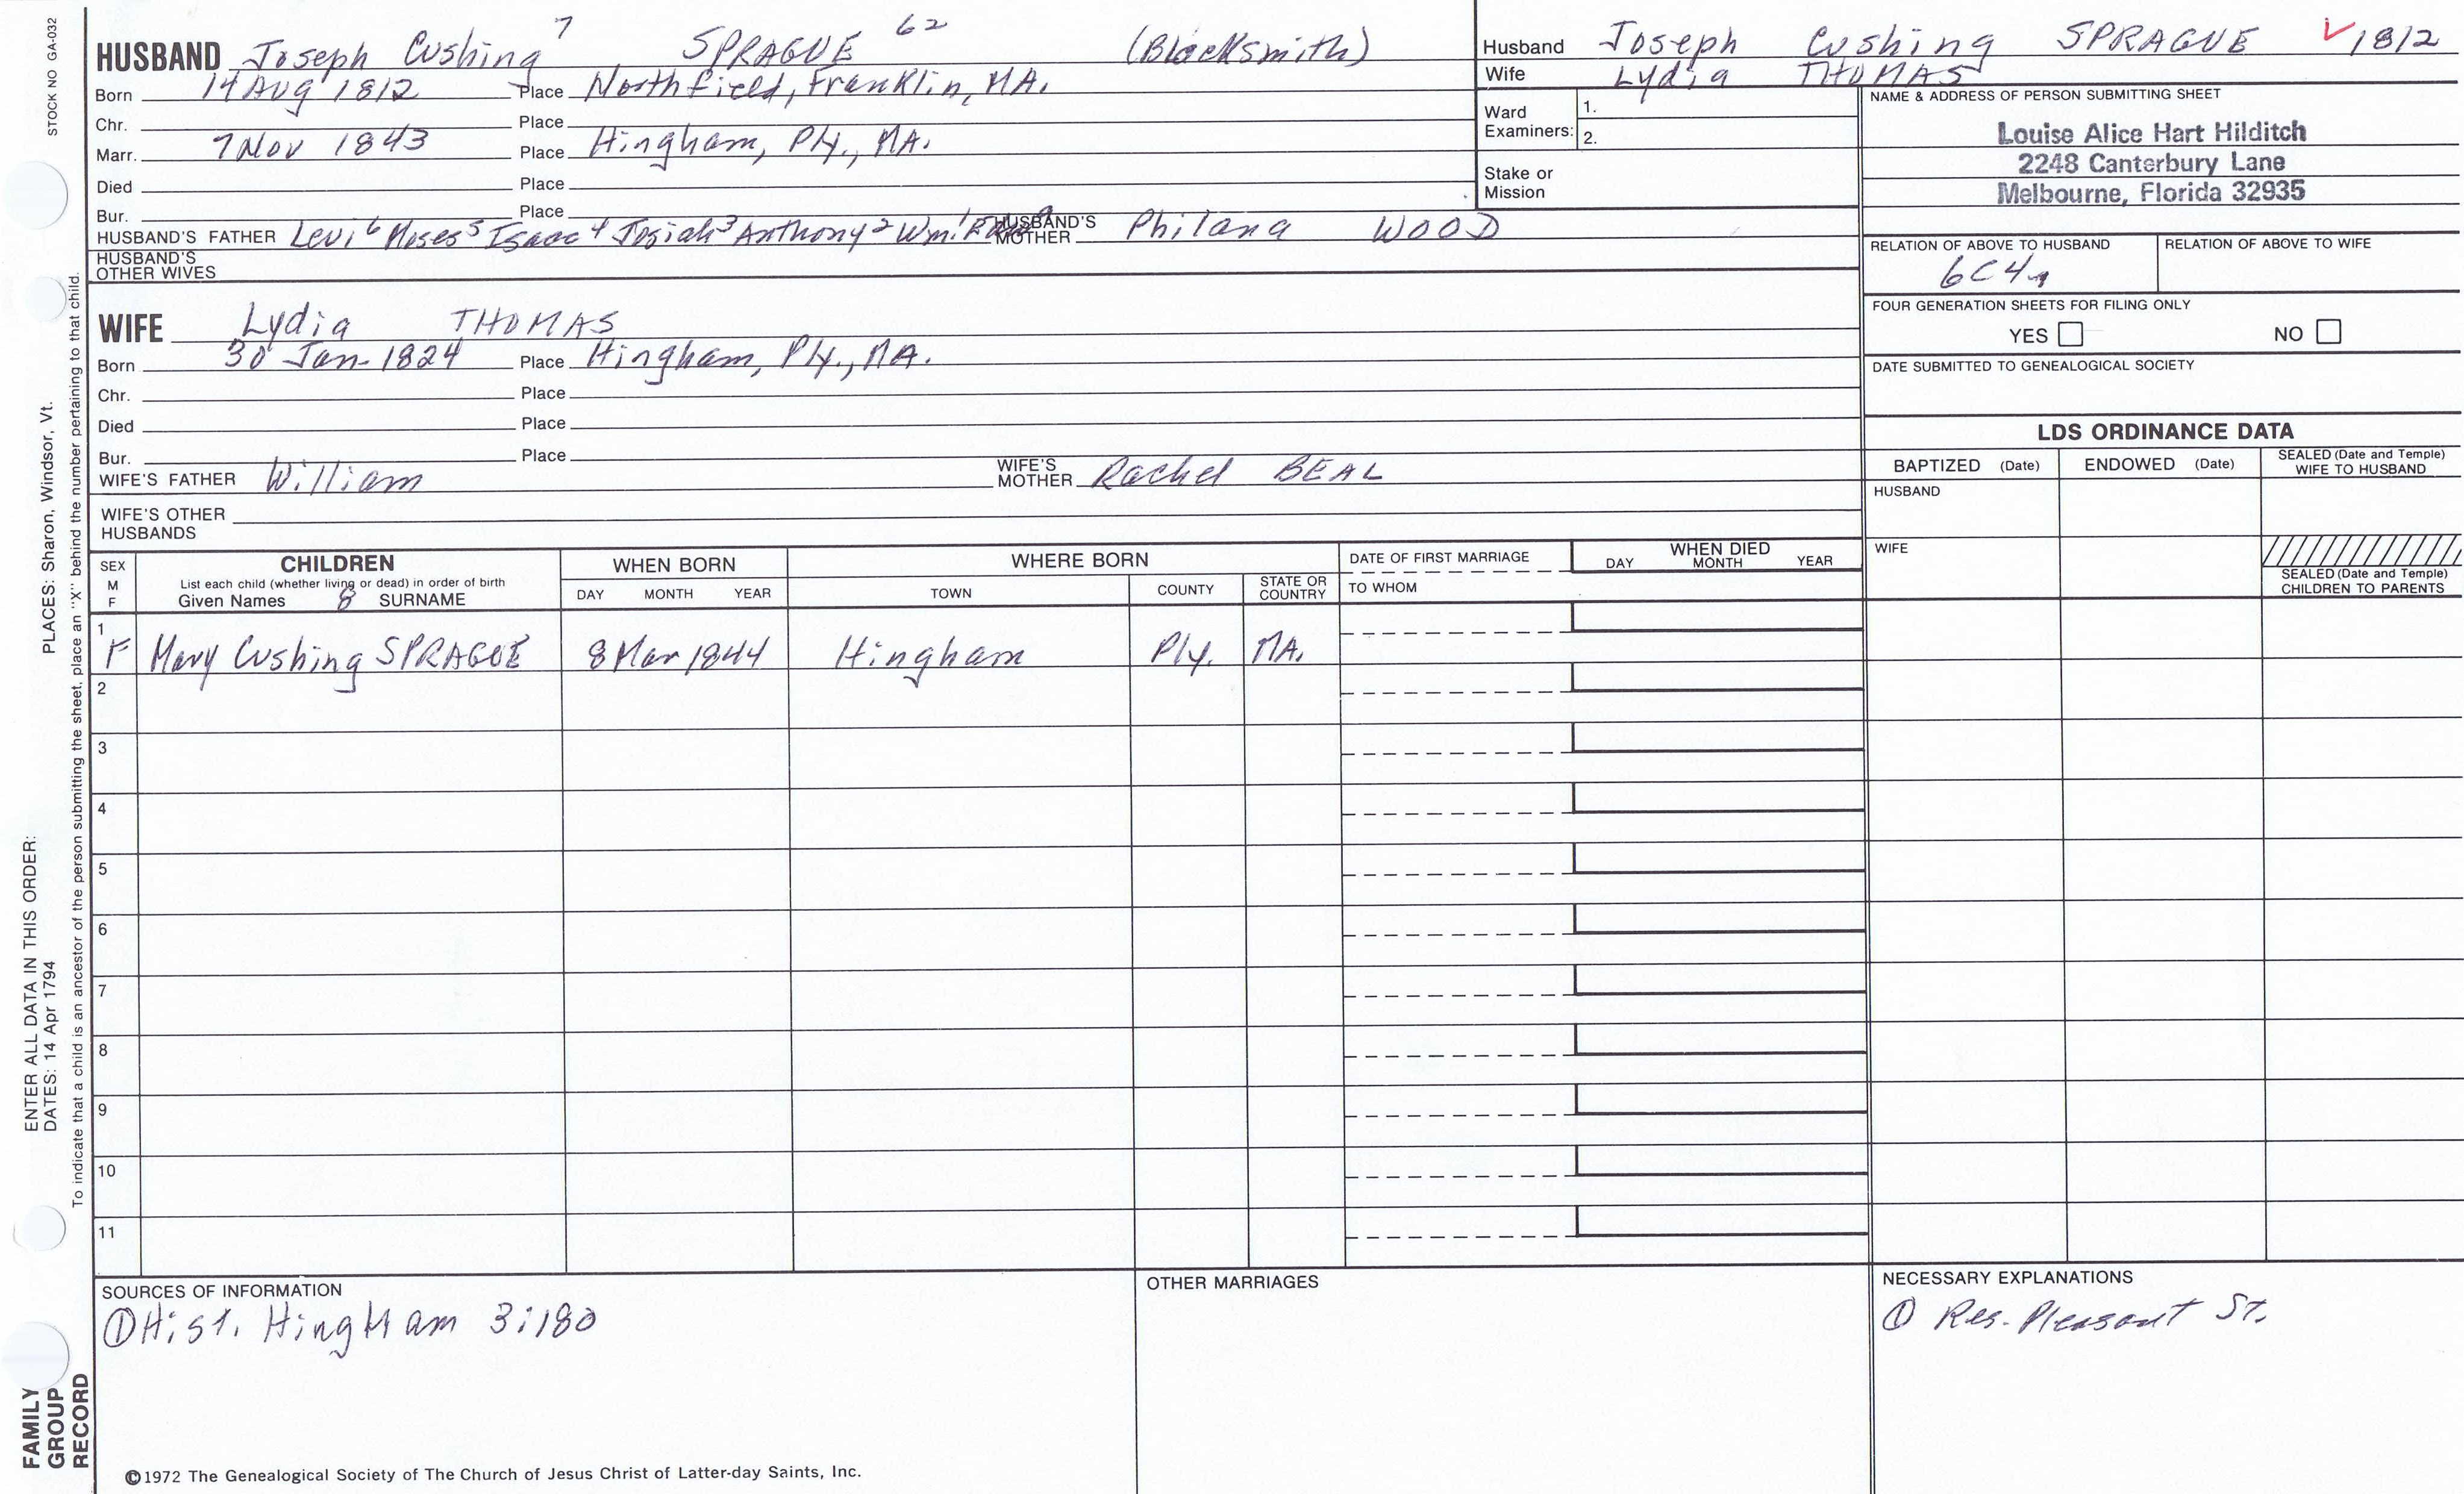 STOCK NO GA-032
HUSBAND Joseph Cushing 7 SPRAGUE 62 (Blacksmith)
Born 14 Aug 1812 Place Northfield, Franklin, MA.
Chr. Place
Marr. 7 Nov 1843 Place Hingham, Ply., MA.
Died Place
Bur. Place
HUSBAND'S FATHER Levi 6 Moses 5 Isaac 4 Josiah 3 Anthony 2 Wm. 1 HUSBAND'S MOTHER Philana WOOD
HUSBAND'S OTHER WIVES
Husband Joseph Cushing SPRAGUE ✓ 1812
Wife Lydia THOMAS
Ward Examiners: 1.
2.
Stake or Mission
NAME & ADDRESS OF PERSON SUBMITTING SHEET
Louise Alice Hart Hilditch
2248 Canterbury Lane
Melbourne, Florida 32935
RELATION OF ABOVE TO HUSBAND RELATION OF ABOVE TO WIFE
6C4r
FOUR GENERATION SHEETS FOR FILING ONLY
YES NO
DATE SUBMITTED TO GENEALOGICAL SOCIETY
WIFE Lydia THOMAS
Born 30 Jan 1824 Place Hingham, Ply., MA.
Chr. Place
Died Place
Bur. Place
WIFE'S FATHER William WIFE'S MOTHER Rachel BEAL
WIFE'S OTHER HUSBANDS
LDS ORDINANCE DATA
BAPTIZED (Date) ENDOWED (Date) SEALED (Date and Temple) WIFE TO HUSBAND
HUSBAND
WIFE
SEALED (Date and Temple) CHILDREN TO PARENTS
SEX M F
CHILDREN
List each child (whether living or dead) in order of birth
Given Names 8 SURNAME
WHEN BORN
DAY MONTH YEAR
WHERE BORN
TOWN COUNTY STATE OR COUNTRY
DATE OF FIRST MARRIAGE
TO WHOM
WHEN DIED
DAY MONTH YEAR
1 F Mary Cushing SPRAGUE 8 Mar 1844 Hingham Ply. MA.
2
3
4
5
6
7
8
9
10
11
SOURCES OF INFORMATION
① Hist. Hingham 3:180
OTHER MARRIAGES
NECESSARY EXPLANATIONS
① Res. Pleasant St.
©1972 The Genealogical Society of The Church of Jesus Christ of Latter-day Saints, Inc.
ENTER ALL DATA IN THIS ORDER:
DATES: 14 Apr 1794 PLACES: Sharon, Windsor, Vt.
To indicate that a child is an ancestor of the person submitting the sheet, place an "X" behind the number pertaining to that child.
FAMILY
GROUP
RECORD